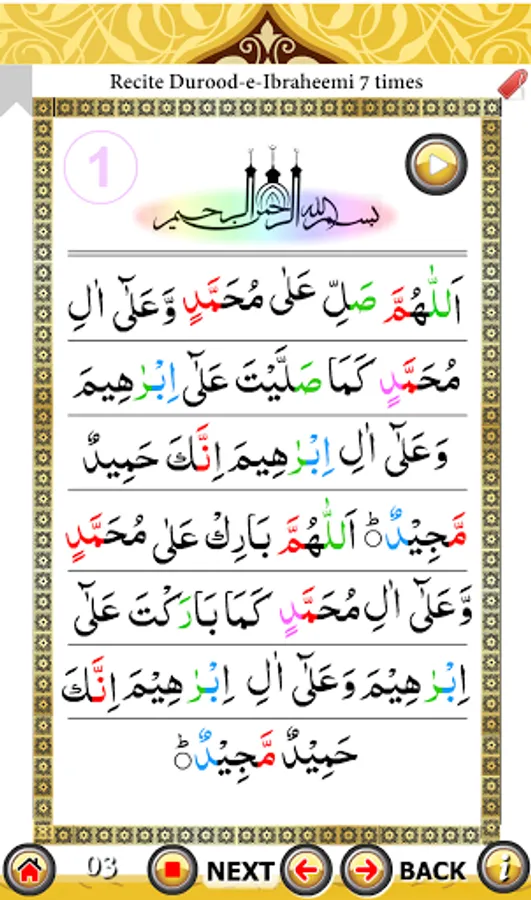 Recite Durood-e-Ibraheemi 7 times
1
بسم الله الرحمن الرحيم
اَللّٰهُمَّ صَلِّ عَلٰى مُحَمَّدٍ وَّعَلٰٓى اٰلِ
مُحَمَّدٍ كَمَا صَلَّيْتَ عَلٰٓى اِبْرٰهِيمَ
وَعَلٰٓى اٰلِ اِبْرٰهِيمَ اِنَّكَ حَمِيدٌ
مَّجِيْدٌؕ اَللّٰهُمَّ بَارِكْ عَلٰى مُحَمَّدٍ
وَّعَلٰٓى اٰلِ مُحَمَّدٍ كَمَا بَارَكْتَ عَلٰٓى
اِبْرٰهِيْمَ وَعَلٰٓى اٰلِ اِبْرٰهِيْمَ اِنَّكَ
حَمِيْدٌ مَّجِيْدٌؕ
03 NEXT BACK i